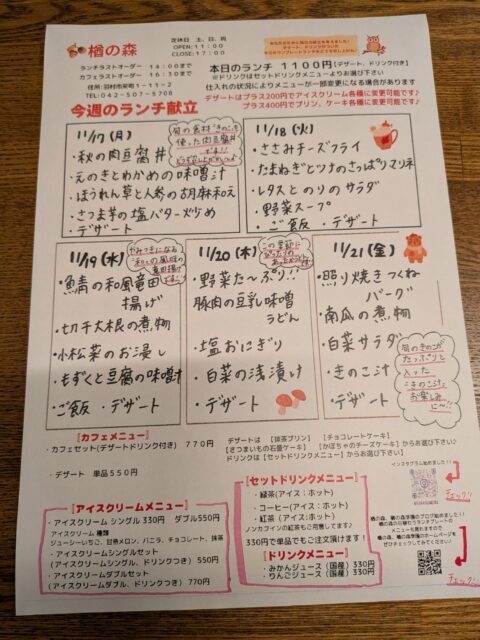 楢の森
定休日 土、日、祝
OPEN:11:00
CLOSE:17:00
ランチラストオーダー 14:00まで
カフェラストオーダー 16:30まで
住所:羽村市栄町1-11-2
TEL:042-507-5708
本日のランチ 1100円(デザート、ドリンク付き)
※ドリンクはセットドリンクメニューよりお選び下さい
仕入れの状況によりメニューが一部変更になる場合があります
デザートはプラス200円でアイスクリーム各種に変更可能です♪
プラス400円でプリン、ケーキ各種に変更可能です♪
今週のランチ献立
11/17(月)
旬の食材"きのこ"を
使った肉豆腐丼
です!!
・秋の肉豆腐丼
・えのきとわかめの味噌汁
・ほうれん草と人参の胡麻和え
・さつま芋の塩バター炒め
・デザート
11/18(火)
・ささみチーズフライ
・たまねぎとツナのさっぱりマリネ
・レタスとのりのサラダ
・野菜スープ
・ご飯 ・デザート
11/19(水)
やみつきになる
和風味の
竜田揚げ
です!!
・鯖の和風竜田
揚げ
・切干大根の煮物
・小松菜のお浸し
・もずくと豆腐の味噌汁
・ご飯 ・デザート
11/20(木)
この季節に
・野菜た〜ぷり!!
豚肉の豆乳味噌
うどん
・塩おにぎり
・白菜の浅漬け
・デザート
11/21(金)
・照り焼きつくね
バーグ
・南瓜の煮物
・白菜サラダ
・きのこ汁
・デザート
旬のきのこが
たっぷりと
入った
きのこ汁、
お楽しみ
に〜!!
【カフェメニュー】
・カフェセット(デザートドリンク付き) 770円
・デザート 単品550円
デザートは 【抹茶プリン】 【チョコレートケーキ】
【さつまいもの石畳ケーキ】 【かぼちゃのチーズケーキ】 からお選び下さい♪
ドリンクは【セットドリンクメニュー】からお選び下さい♪
【アイスクリームメニュー】
・アイスクリーム シングル330円 ダブル550円
アイスクリーム 種類
ジューシーいちご、甘熟メロン、バニラ、チョコレート、抹茶
・アイスクリームシングルセット
(アイスクリームシングル、ドリンクつき) 550円
・アイスクリームダブルセット
(アイスクリームダブル、ドリンクつき) 770円
【セットドリンクメニュー】
・緑茶(アイス:ホット)
・コーヒー(アイス:ホット)
・紅茶(アイス:ホット)
ノンカフェインの紅茶もご用意してます♪
330円で単品でもご注文頂けます!
【ドリンクメニュー】
・みかんジュース(国産)330円
・りんごジュース(国産)330円
インスタグラム始めました!!
チェック!!
楢の森、楢の森学園のブログ始めました!!
楢の森の日替わりランチプレートの
メニューも見れますので
楢の森、楢の森学園のホームページを
ぜひチェックしてみてください!
チェック!!